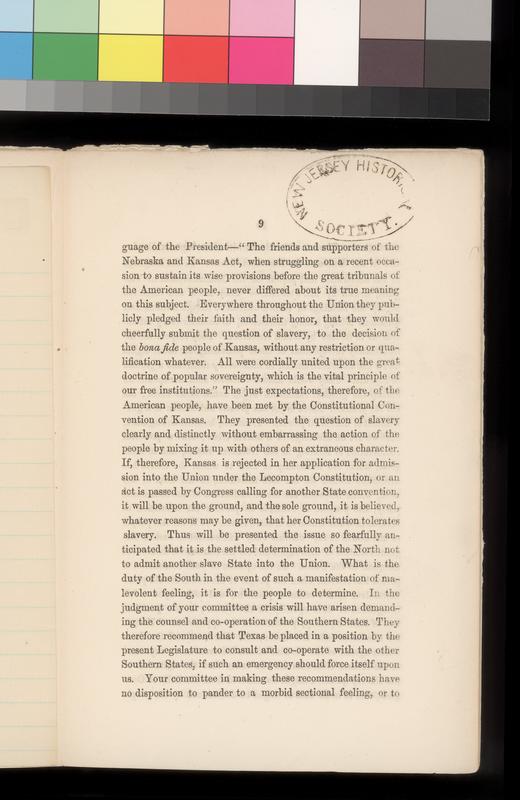 NEW JERSEY HISTORICAL
SOCIETY.
9
guage of the President—“The friends and supporters of the
Nebraska and Kansas Act, when struggling on a recent occa-
sion to sustain its wise provisions before the great tribunals of
the American people, never differed about its true meaning
on this subject. Everywhere throughout the Union they pub-
licly pledged their faith and their honor, that they would
cheerfully submit the question of slavery, to the decision of
the bona fide people of Kansas, without any restriction or qua-
lification whatever. All were cordially united upon the great
doctrine of popular sovereignty, which is the vital principle of
our free institutions.” The just expectations, therefore, of the
American people, have been met by the Constitutional Con-
vention of Kansas. They presented the question of slavery
clearly and distinctly without embarrassing the action of the
people by mixing it up with others of an extraneous character.
If, therefore, Kansas is rejected in her application for admis-
sion into the Union under the Lecompton Constitution, or an
act is passed by Congress calling for another State convention,
it will be upon the ground, and the sole ground, it is believed,
whatever reasons may be given, that her Constitution tolerates
slavery. Thus will be presented the issue so fearfully an-
ticipated that it is the settled determination of the North not
to admit another slave State into the Union. What is the
duty of the South in the event of such a manifestation of ma-
levolent feeling, it is for the people to determine. In the
judgment of your committee a crisis will have arisen demand-
ing the counsel and co-operation of the Southern States. They
therefore recommend that Texas be placed in a position by the
present Legislature to consult and co-operate with the other
Southern States, if such an emergency should force itself upon
us. Your committee in making these recommendations have
no disposition to pander to a morbid sectional feeling, or to